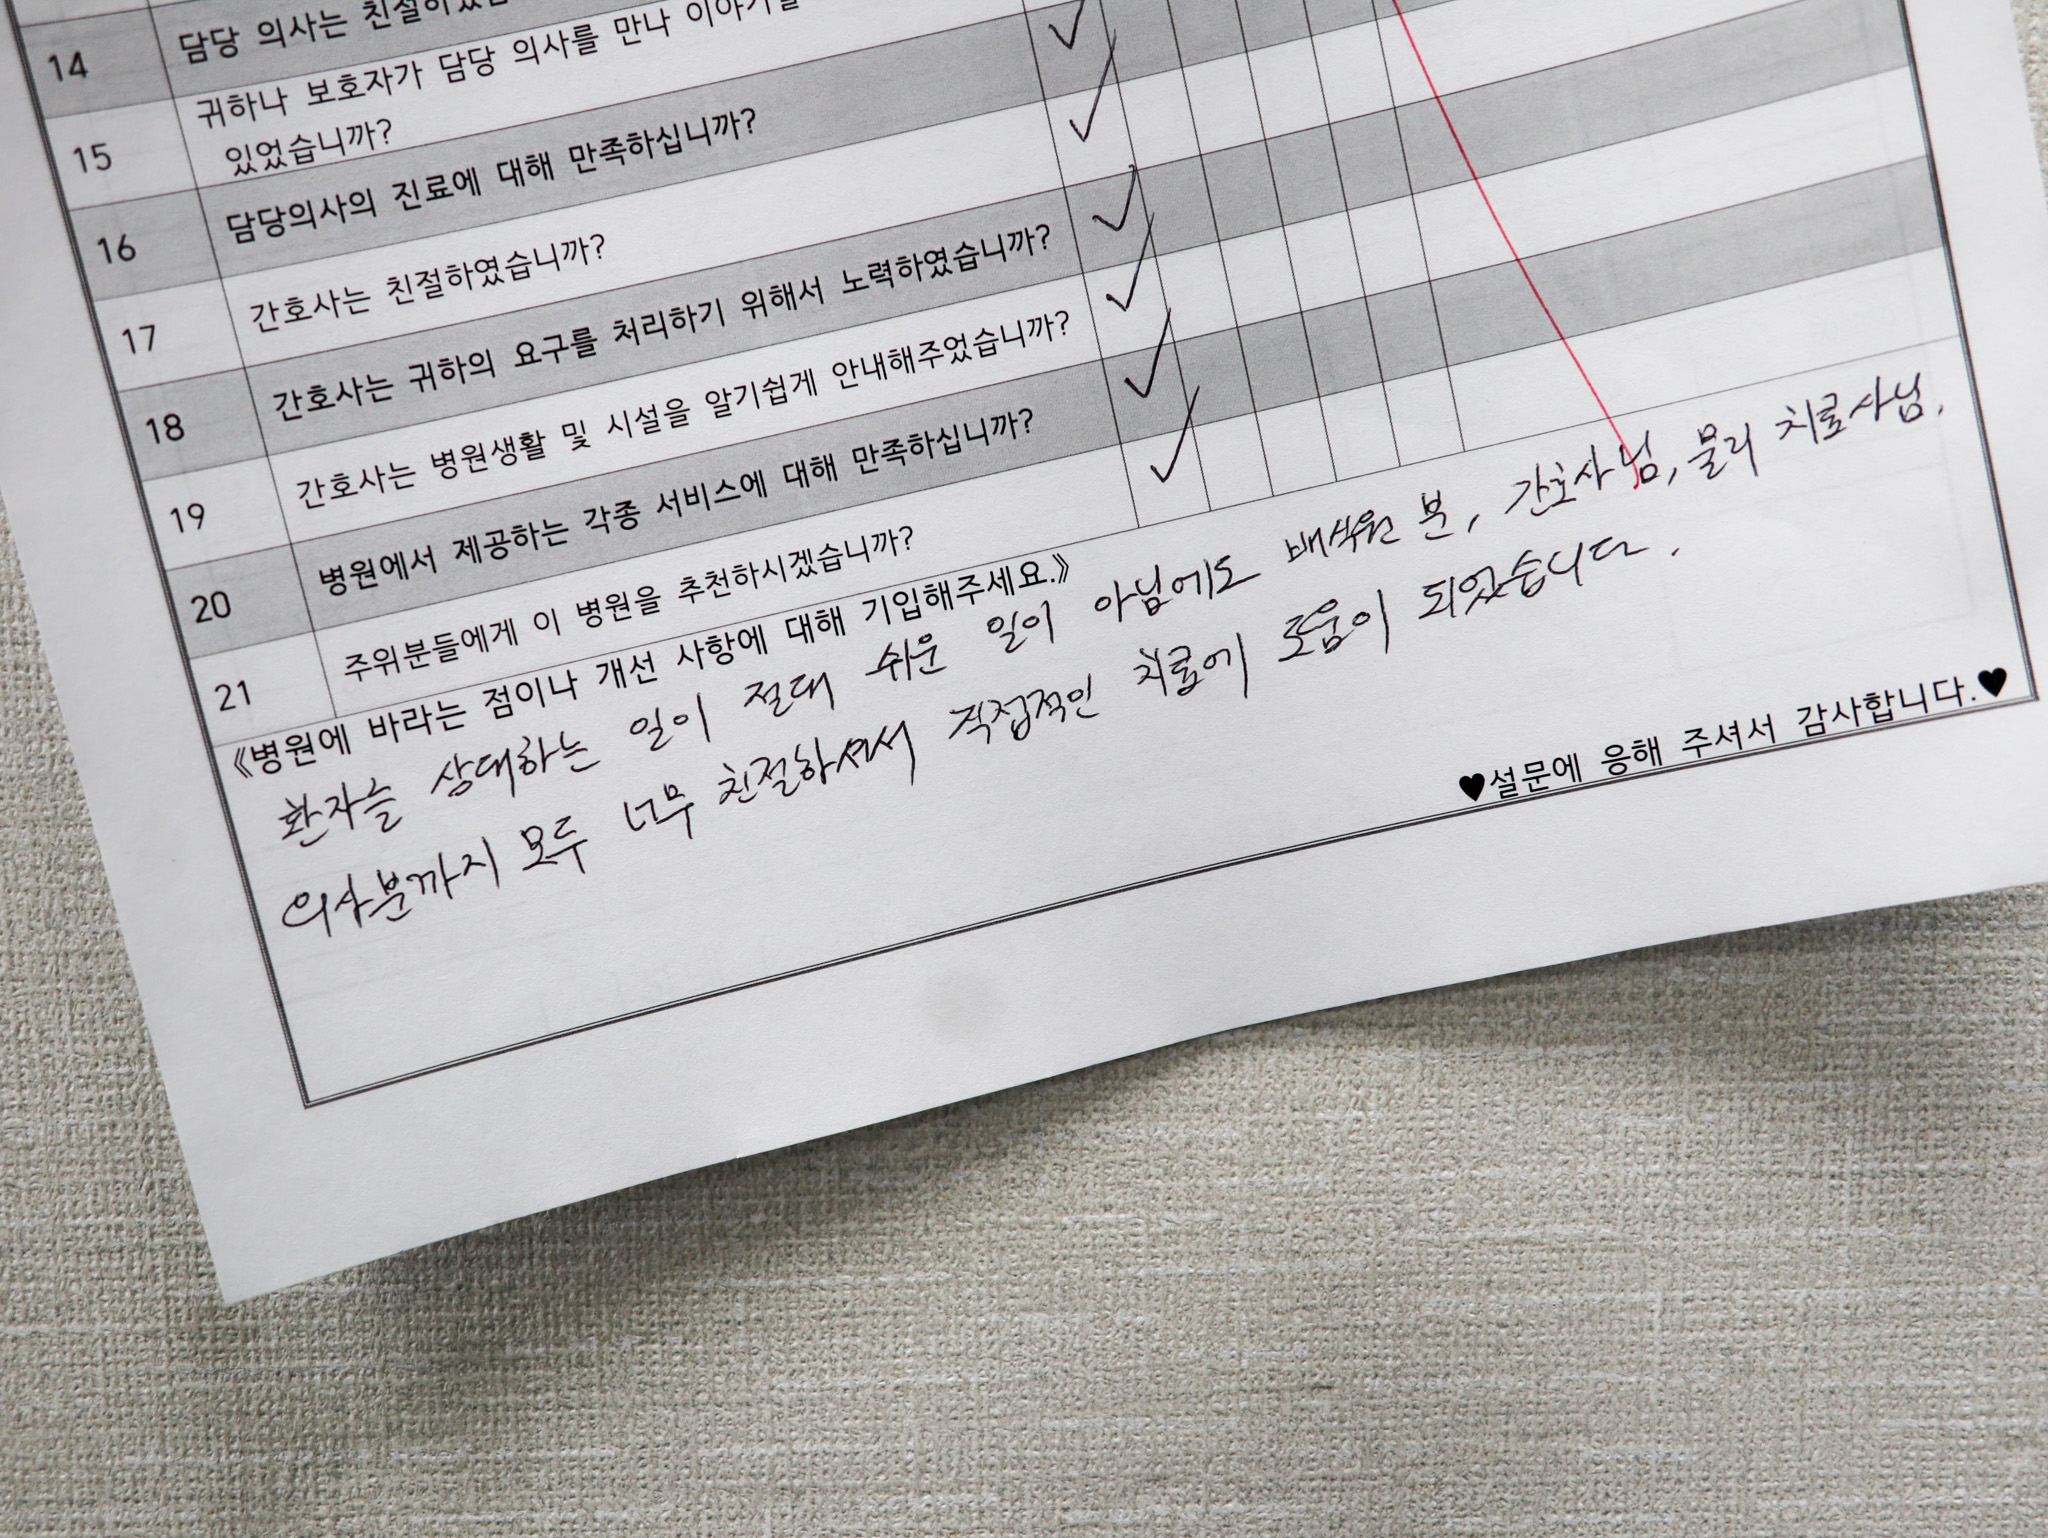 14 담당 의사는
15 귀하나 보호자가 담당 의사를 만나 이야기할
있었습니까?
16 담당의사의 진료에 대해 만족하십니까?
17 간호사는 친절하였습니까?
18 간호사는 귀하의 요구를 처리하기 위해서 노력하였습니까?
19 간호사는 병원생활 및 시설을 알기쉽게 안내해주었습니까?
20 병원에서 제공하는 각종 서비스에 대해 만족하십니까?
21 주위분들에게 이 병원을 추천하시겠습니까?
《병원에 바라는 점이나 개선 사항에 대해 기입해주세요.》
환자를 상대하는 일이 절대 쉬운 일이 아님에도 배식원 분, 간호사님, 물리 치료사님,
의사분까지 모두 너무 친절하셔서 직접적인 치료에 도움이 되었습니다.
♥설문에 응해 주셔서 감사합니다.♥